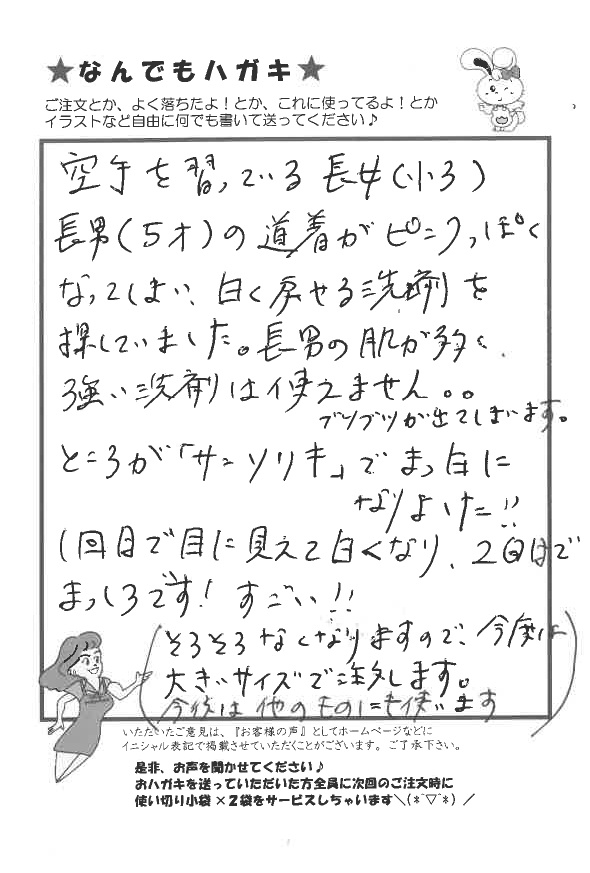 ★なんでもハガキ★
ご注文とか、よく落ちたよ！とか、これに使ってるよ！とか
イラストなど自由に何でも書いて送ってください♪
空手を習っている長女（小3）
長男（5才）の道着がピンクっぽく
なってしまい、白く戻せる洗剤を
探していました。長男の肌が
強い洗剤は使えません。。
ブツブツが出てしまいます。
ところが「サンソリキ」でまっ白に
なりました!!
1回目で目に見えて白くなり、2回目で
まっしろです！すごい!!
（そろそろなくなりますので、今度は
大きいサイズで注文します。
今後は他のものにも使います）
いただいたご意見は、『お客様の声』としてホームページなどに
イニシャル表記で掲載させていただくことがございます。ご了承下さい。
是非、お声を聞かせてください♪
おハガキを送っていただいた方全員に次回のご注文時に
使い切り小袋×2袋をサービスしちゃいます＼(*^▽^*)／